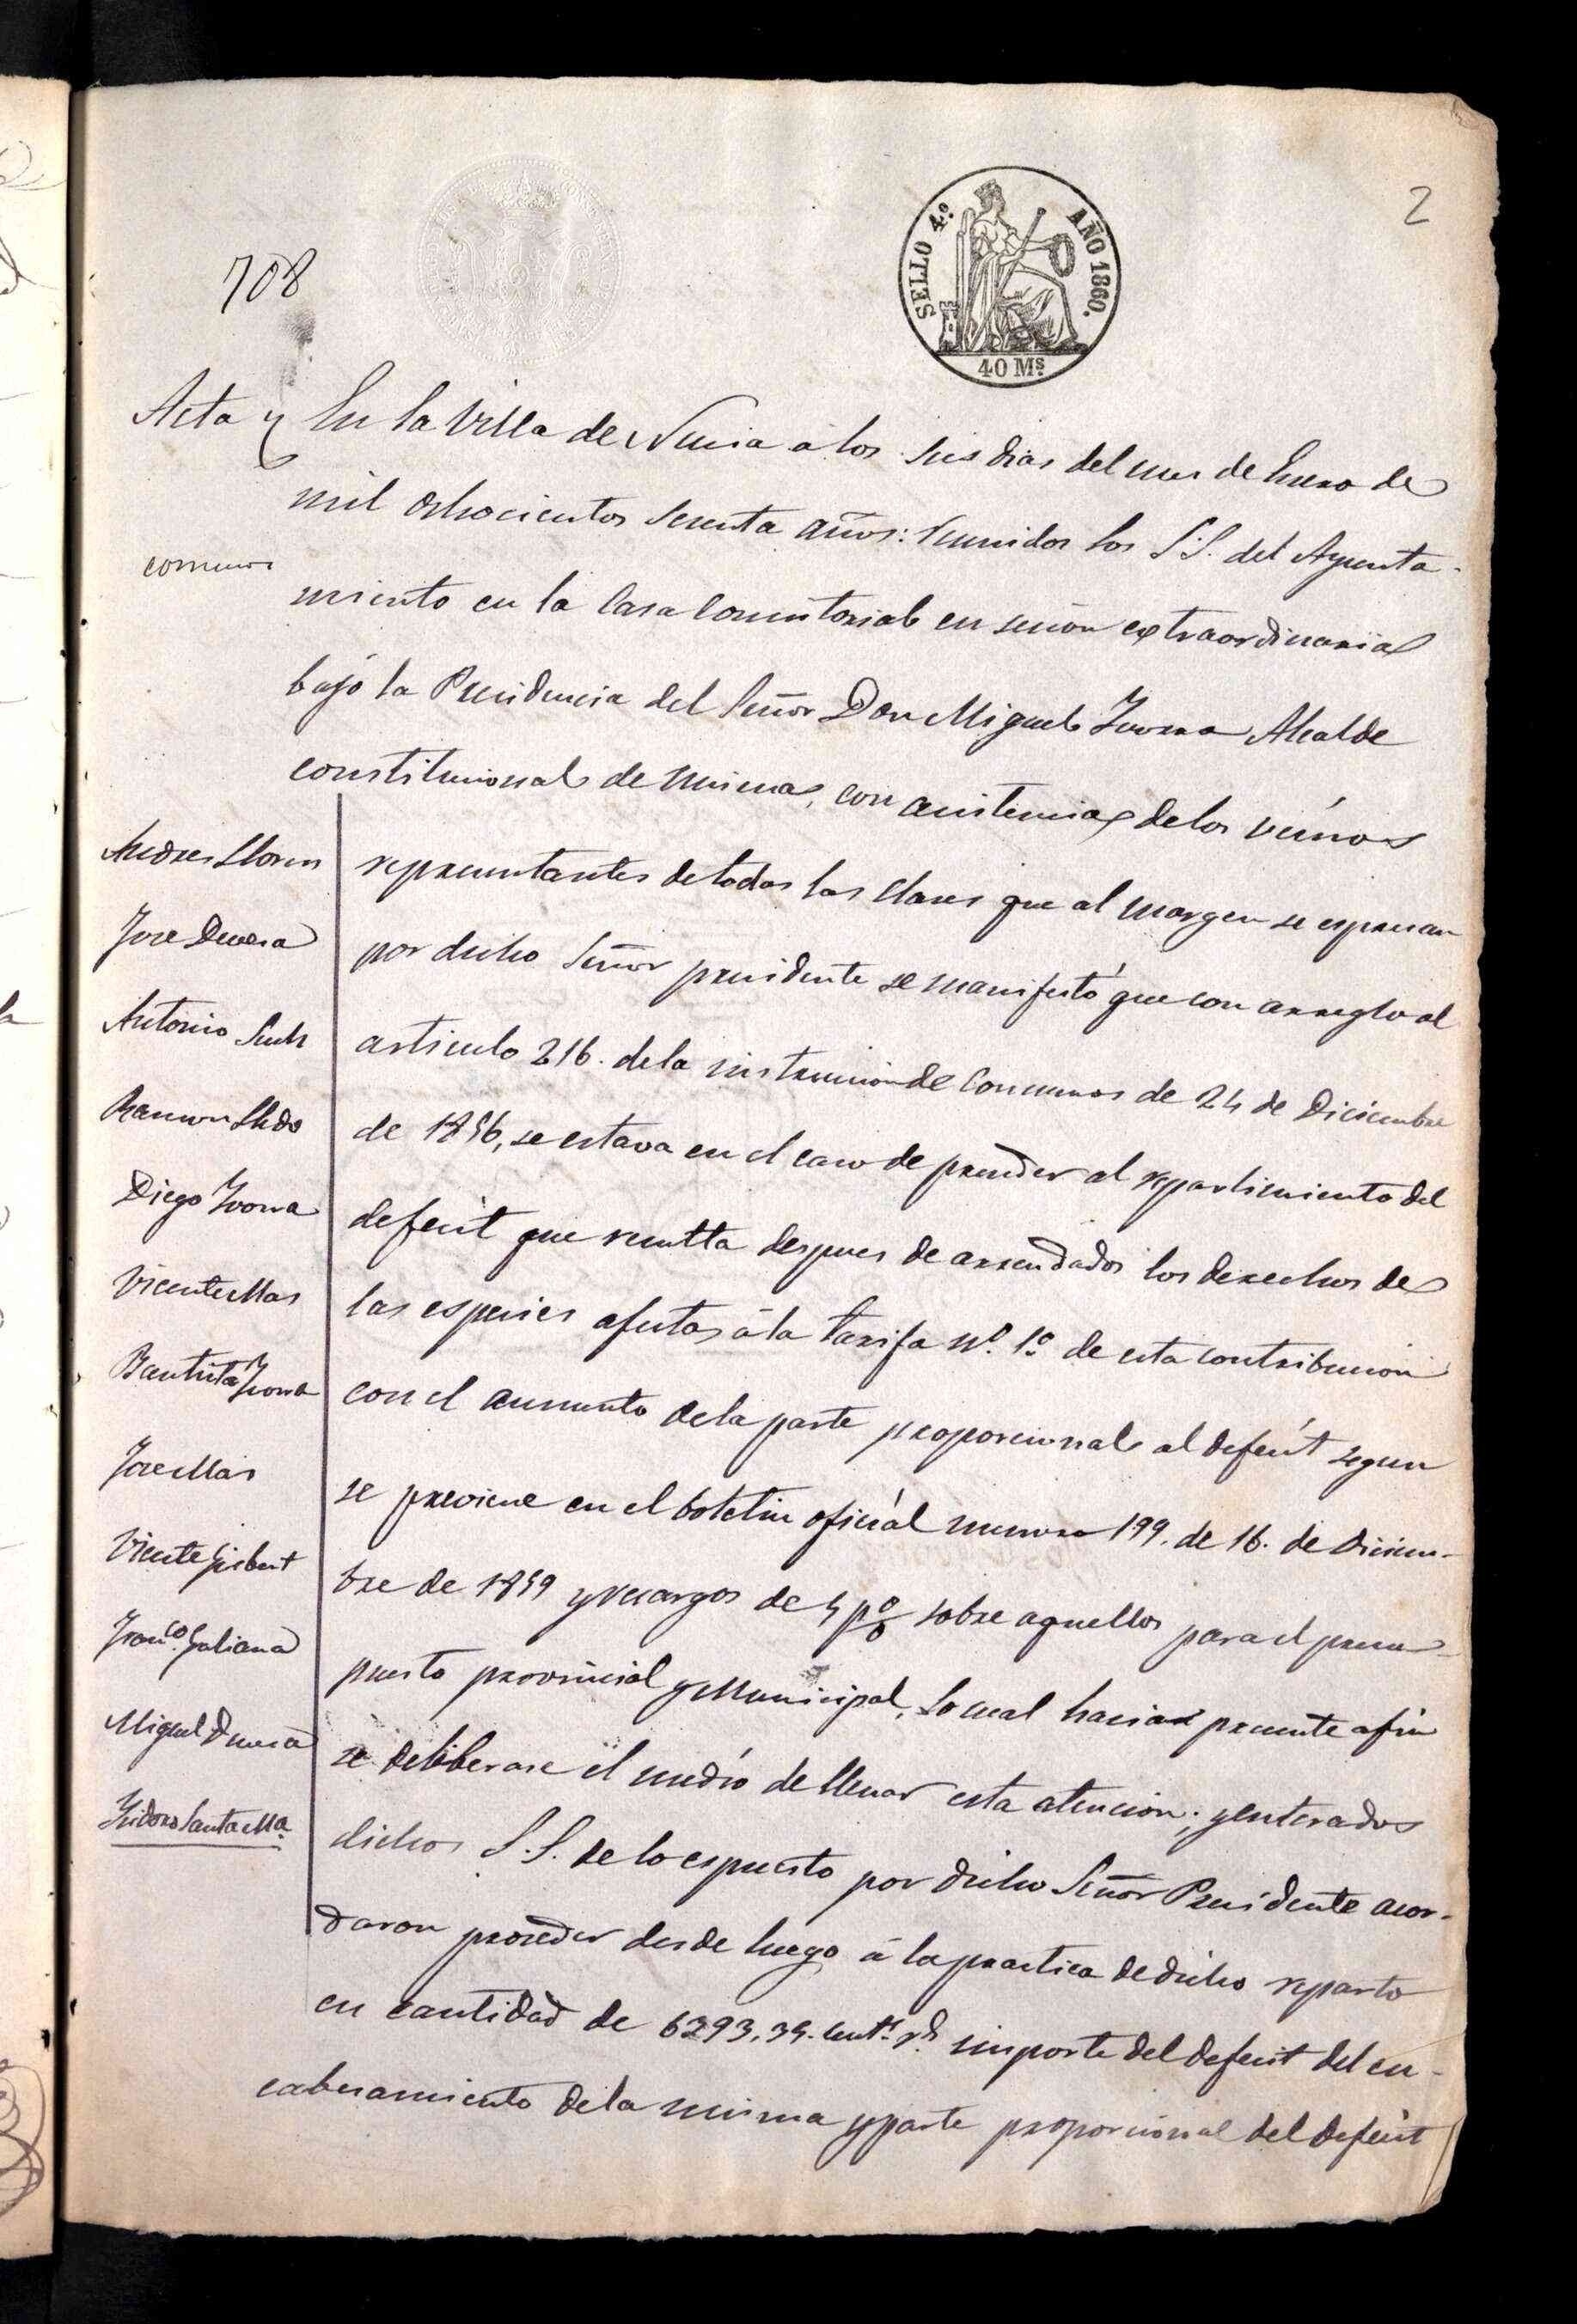 2
708
SELLO 4.º AÑO 1860.
40 Mˢ
Acta y En la Villa de Nucia á los seis dias del mes de Enero de
mil ochocientos sesenta años: reunidos los S.S. del Ayunta-
consumos
miento en la Casa Consistorial en sesion extraordinaria
bajo la Presidencia del Señor Don Miguel Yvorra Alcalde
constitucional de misma, con asistencia de los vecinos
representantes de todas las clases que al margen se espresan
por dicho Señor presidente se manifestó que con arreglo al
articulo 216. de la instruccion de consumos de 24 de Diciembre
de 1856, se estava en el caso de proceder al repartimiento del
deficit que resulta despues de arrendados los derechos de
las especies afectas á la tarifa nº. 1º de esta contribucion
con el aumento de la parte proporcional al deficit segun
se previene en el boletin oficial numero 199. de 16. de Diciem-
bre de 1859 y recargos de 4 pº% sobre aquellos para el presu-
puesto provincial y Municipal, lo cual hacia presente afin
se deliberase el medio de llenar esta atencion; y enterados
dichos S.S. de lo espuesto por dicho Señor Presidente acor-
daron proceder desde luego á la practica de dicho reparto
en cantidad de 6293,39. centˢ. rˢ. importe del deficit del en-
cabesamiento de la misma y parte proporcional del deficit
Andres Llorens
Jose Devesa
Antonio
Ramon Lledo
Diego Yvorra
Vicente Mas
Bautista Yvorra
Jose Mas
Vicente Gisbert
Franco. Galiana
Miguel Devesa
Isidoro Santa Ma.